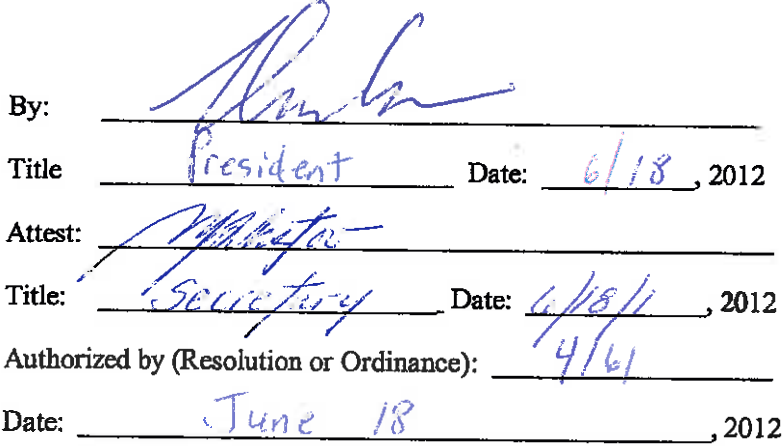 By:
Title President Date: 6/18, 2012
Attest:
Title: Secretary Date: 6/18/1, 2012
Authorized by (Resolution or Ordinance): 4161
Date: June 18, 2012